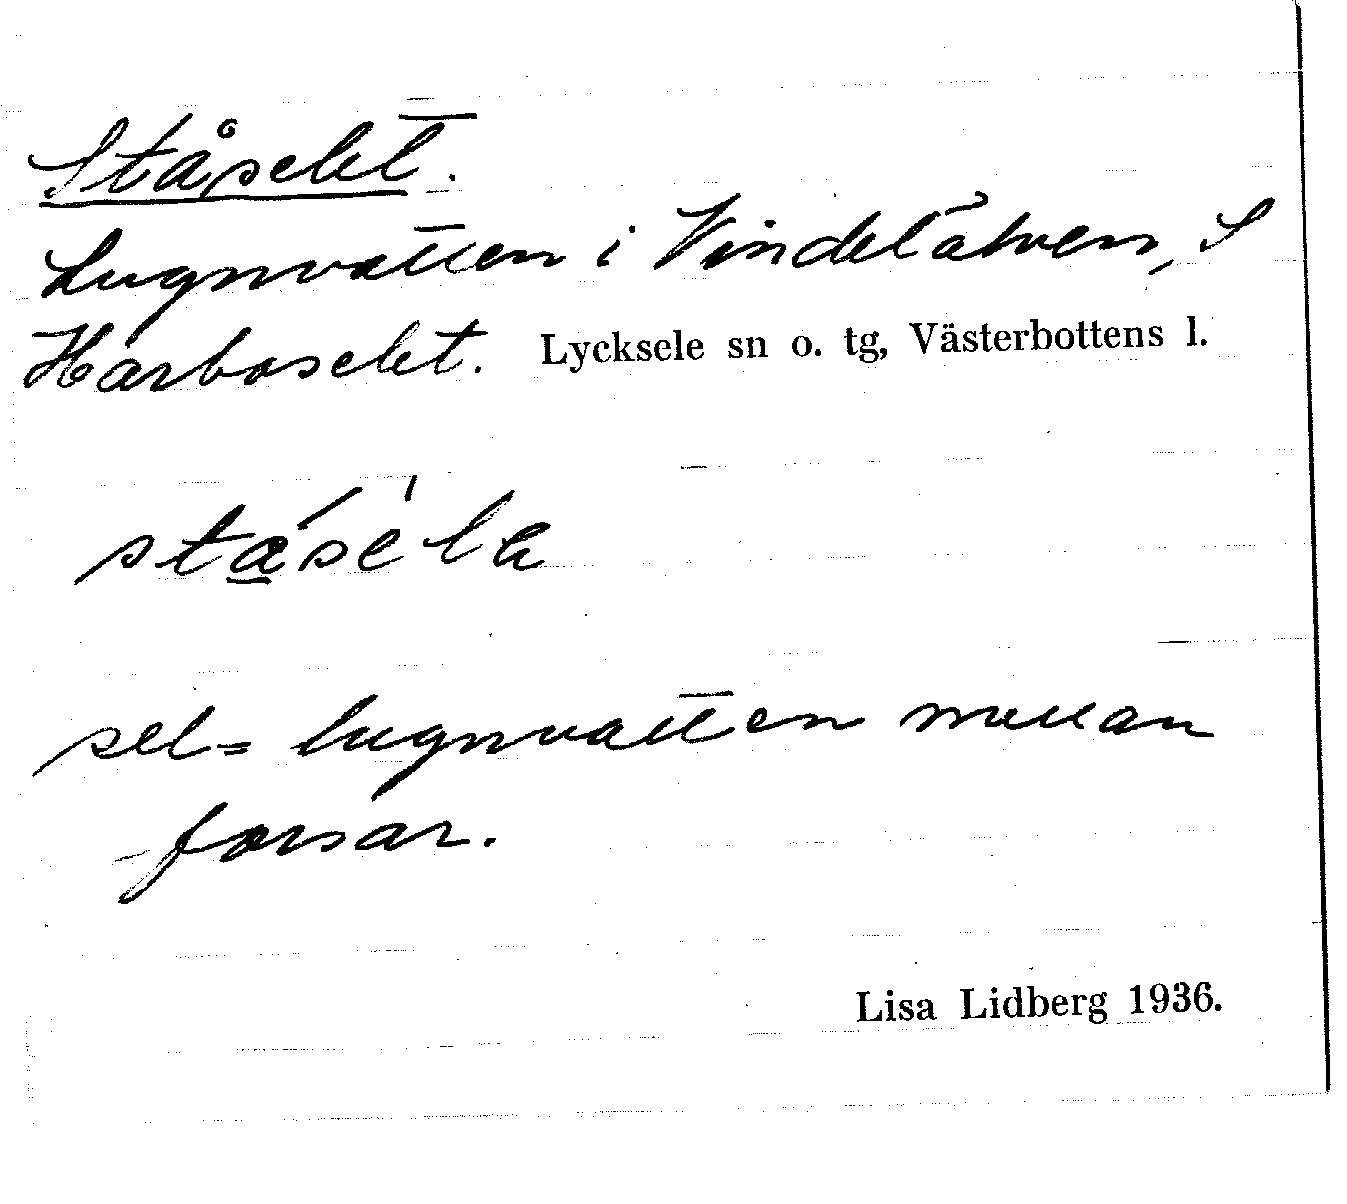 Ståselet.
Lugnvatten i Vindelälven, S
Harboselet. Lycksele sn o. tg, Västerbottens l.
stasela
sel = lugnvatten mellan
forsar.
Lisa Lidberg 1936.